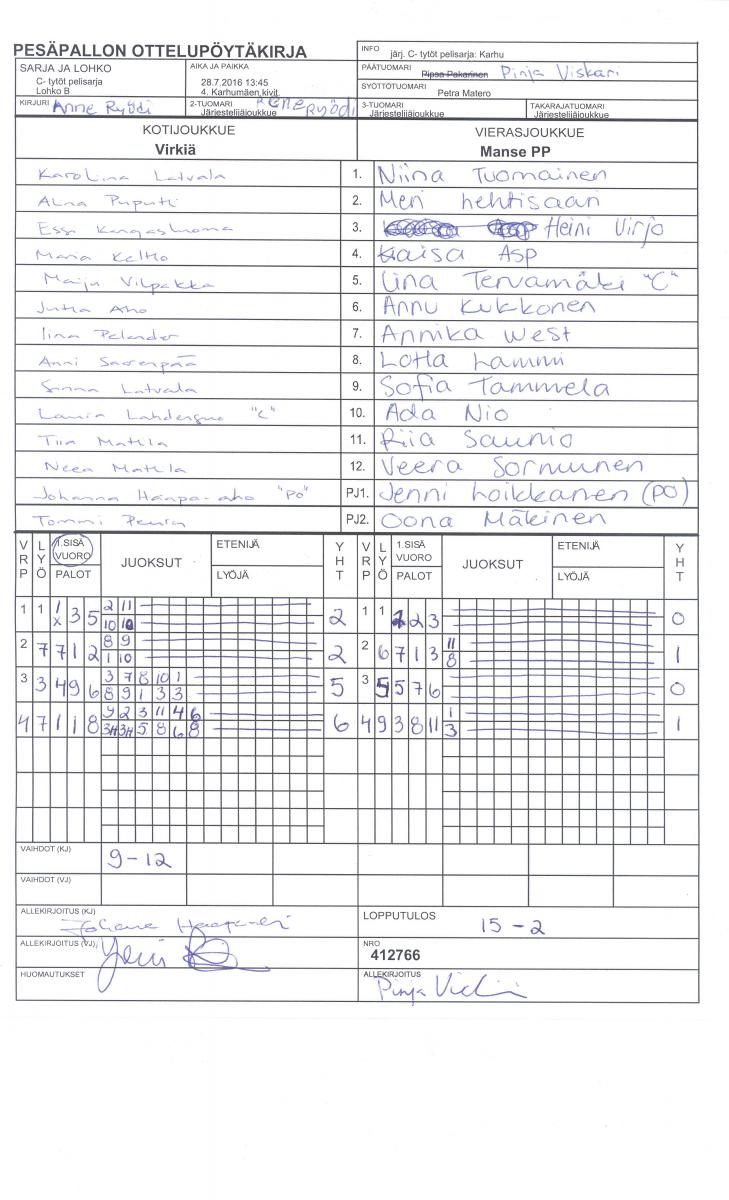 PESÄPALLON OTTELUPÖYTÄKIRJA
INFO järj. C- tytöt pelisarja: Karhu
SARJA JA LOHKO
C- tytöt pelisarja
Lohko B
AIKA JA PAIKKA
28.7.2016 13:45
4. Karhumäen kivit.
PÄÄTUOMARI Ripsa Pakarinen Pinja Viskari
SYÖTTÖTUOMARI Petra Matero
KIRJURI Anne Ryödi
2-TUOMARI Järjestelijäjoukkue Rene Ryödi
3-TUOMARI Järjestelijäjoukkue
TAKARAJATUOMARI Järjestelijäjoukkue
KOTIJOUKKUE VIERASJOUKKUE
Virkiä Manse PP
Karolina Latvala 1. Niina Tuomainen
Alina Puputti 2. Meri Lehtisaari
Essi Kangasluoma 3. Heini Virjo
Maria Keltto 4. Kaisa Asp
Maiju Vilpakka 5. Iina Tervamäki "C"
Jutta Aho 6. Annu Kukkonen
Iina Pelander 7. Annika West
Anni Saarenpää 8. Lotta Lammi
Sanna Latvala 9. Sofia Tammela
"C" 10. Ada Nio
Tiia Mattila 11. Riia Saunio
Neea Mattila 12. Veera Sornuunen
Johanna Haapa-aho "PO" PJ1. Jenni Loikkanen (PO)
Tommi Peura PJ2. Oona Mäkinen
VRP LYÖ 1.SISÄ VUORO PALOT JUOKSUT ETENIJÄ LYÖJÄ YHT VRP LYÖ 1.SISÄ VUORO PALOT JUOKSUT ETENIJÄ LYÖJÄ YHT
1 1 1 3 5 2 11 2 1 1 2 2 3 0
x 10 10
2 7 7 1 2 8 9 2 2 6 7 1 3 11 1
1 10 8
3 3 4 9 6 3 7 8 10 1 5 3 5 5 7 6 0
8 9 1 3 3
4 7 1 1 8 9 2 3 11 4 6 6 4 9 3 8 11 1 1
3H 3H 5 8 6 8 3
VAIHDOT (KJ) 9-12
VAIHDOT (VJ)
ALLEKIRJOITUS (KJ) LOPPUTULOS 15-2
ALLEKIRJOITUS (VJ) NRO
412766
HUOMAUTUKSET ALLEKIRJOITUS